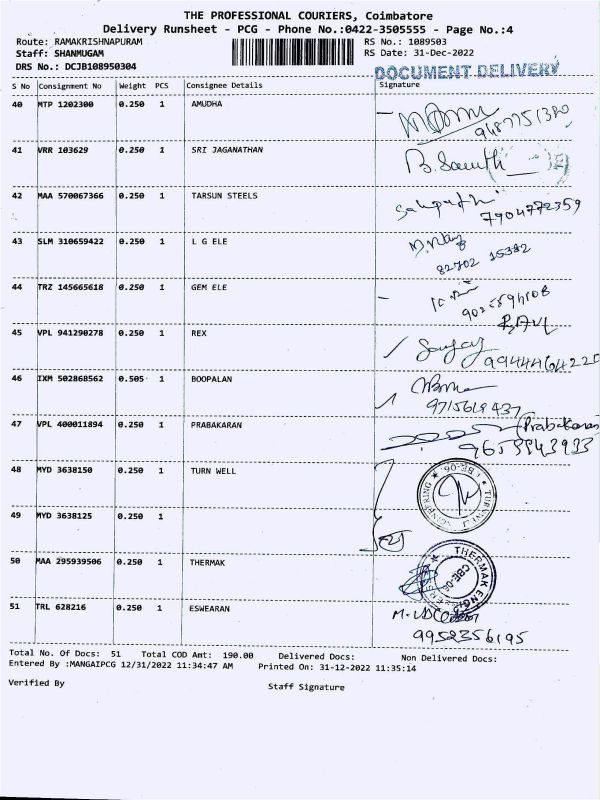 THE PROFESSIONAL COURIERS, Coimbatore
Delivery Runsheet - PCG - Phone No.:0422-3505555 - Page No.:4
Route: RAMAKRISHNAPURAM RS No.: 1089503
Staff: SHANMUGAM RS Date: 31-Dec-2022
DRS No.: DCJB108950304
DOCUMENT DELIVERY
S No Consignment No Weight PCS Consignee Details Signature
40 MTP 1202300 0.250 1 AMUDHA
41 VRR 103629 0.250 1 SRI JAGANATHAN
42 MAA 570067366 0.250 1 TARSUN STEELS
7904772359
43 SLM 310659422 0.250 1 L G ELE
82702 15392
44 TRZ 145665618 0.250 1 GEM ELE
RAVI
45 VPL 941290278 0.250 1 REX
Sanjay
9944464220
46 IXM 502868562 0.505 1 BOOPALAN
9715619437
47 VPL 400011894 0.250 1 PRABAKARAN
(Prabakaran
9653943933
48 MYD 3638150 0.250 1 TURN WELL
49 MYD 3638125 0.250 1
50 MAA 295939506 0.250 1 THERMAK
THERMAK
51 TRL 628216 0.250 1 ESWEARAN
9952356195
Total No. Of Docs: 51 Total COD Amt: 190.00 Delivered Docs: Non Delivered Docs:
Entered By :MANGAIPCG 12/31/2022 11:34:47 AM Printed On: 31-12-2022 11:35:14
Verified By Staff Signature